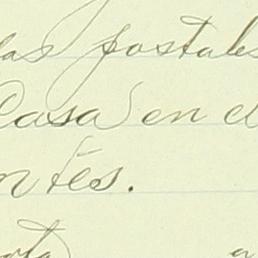 las postales
Casa en el
ntés.